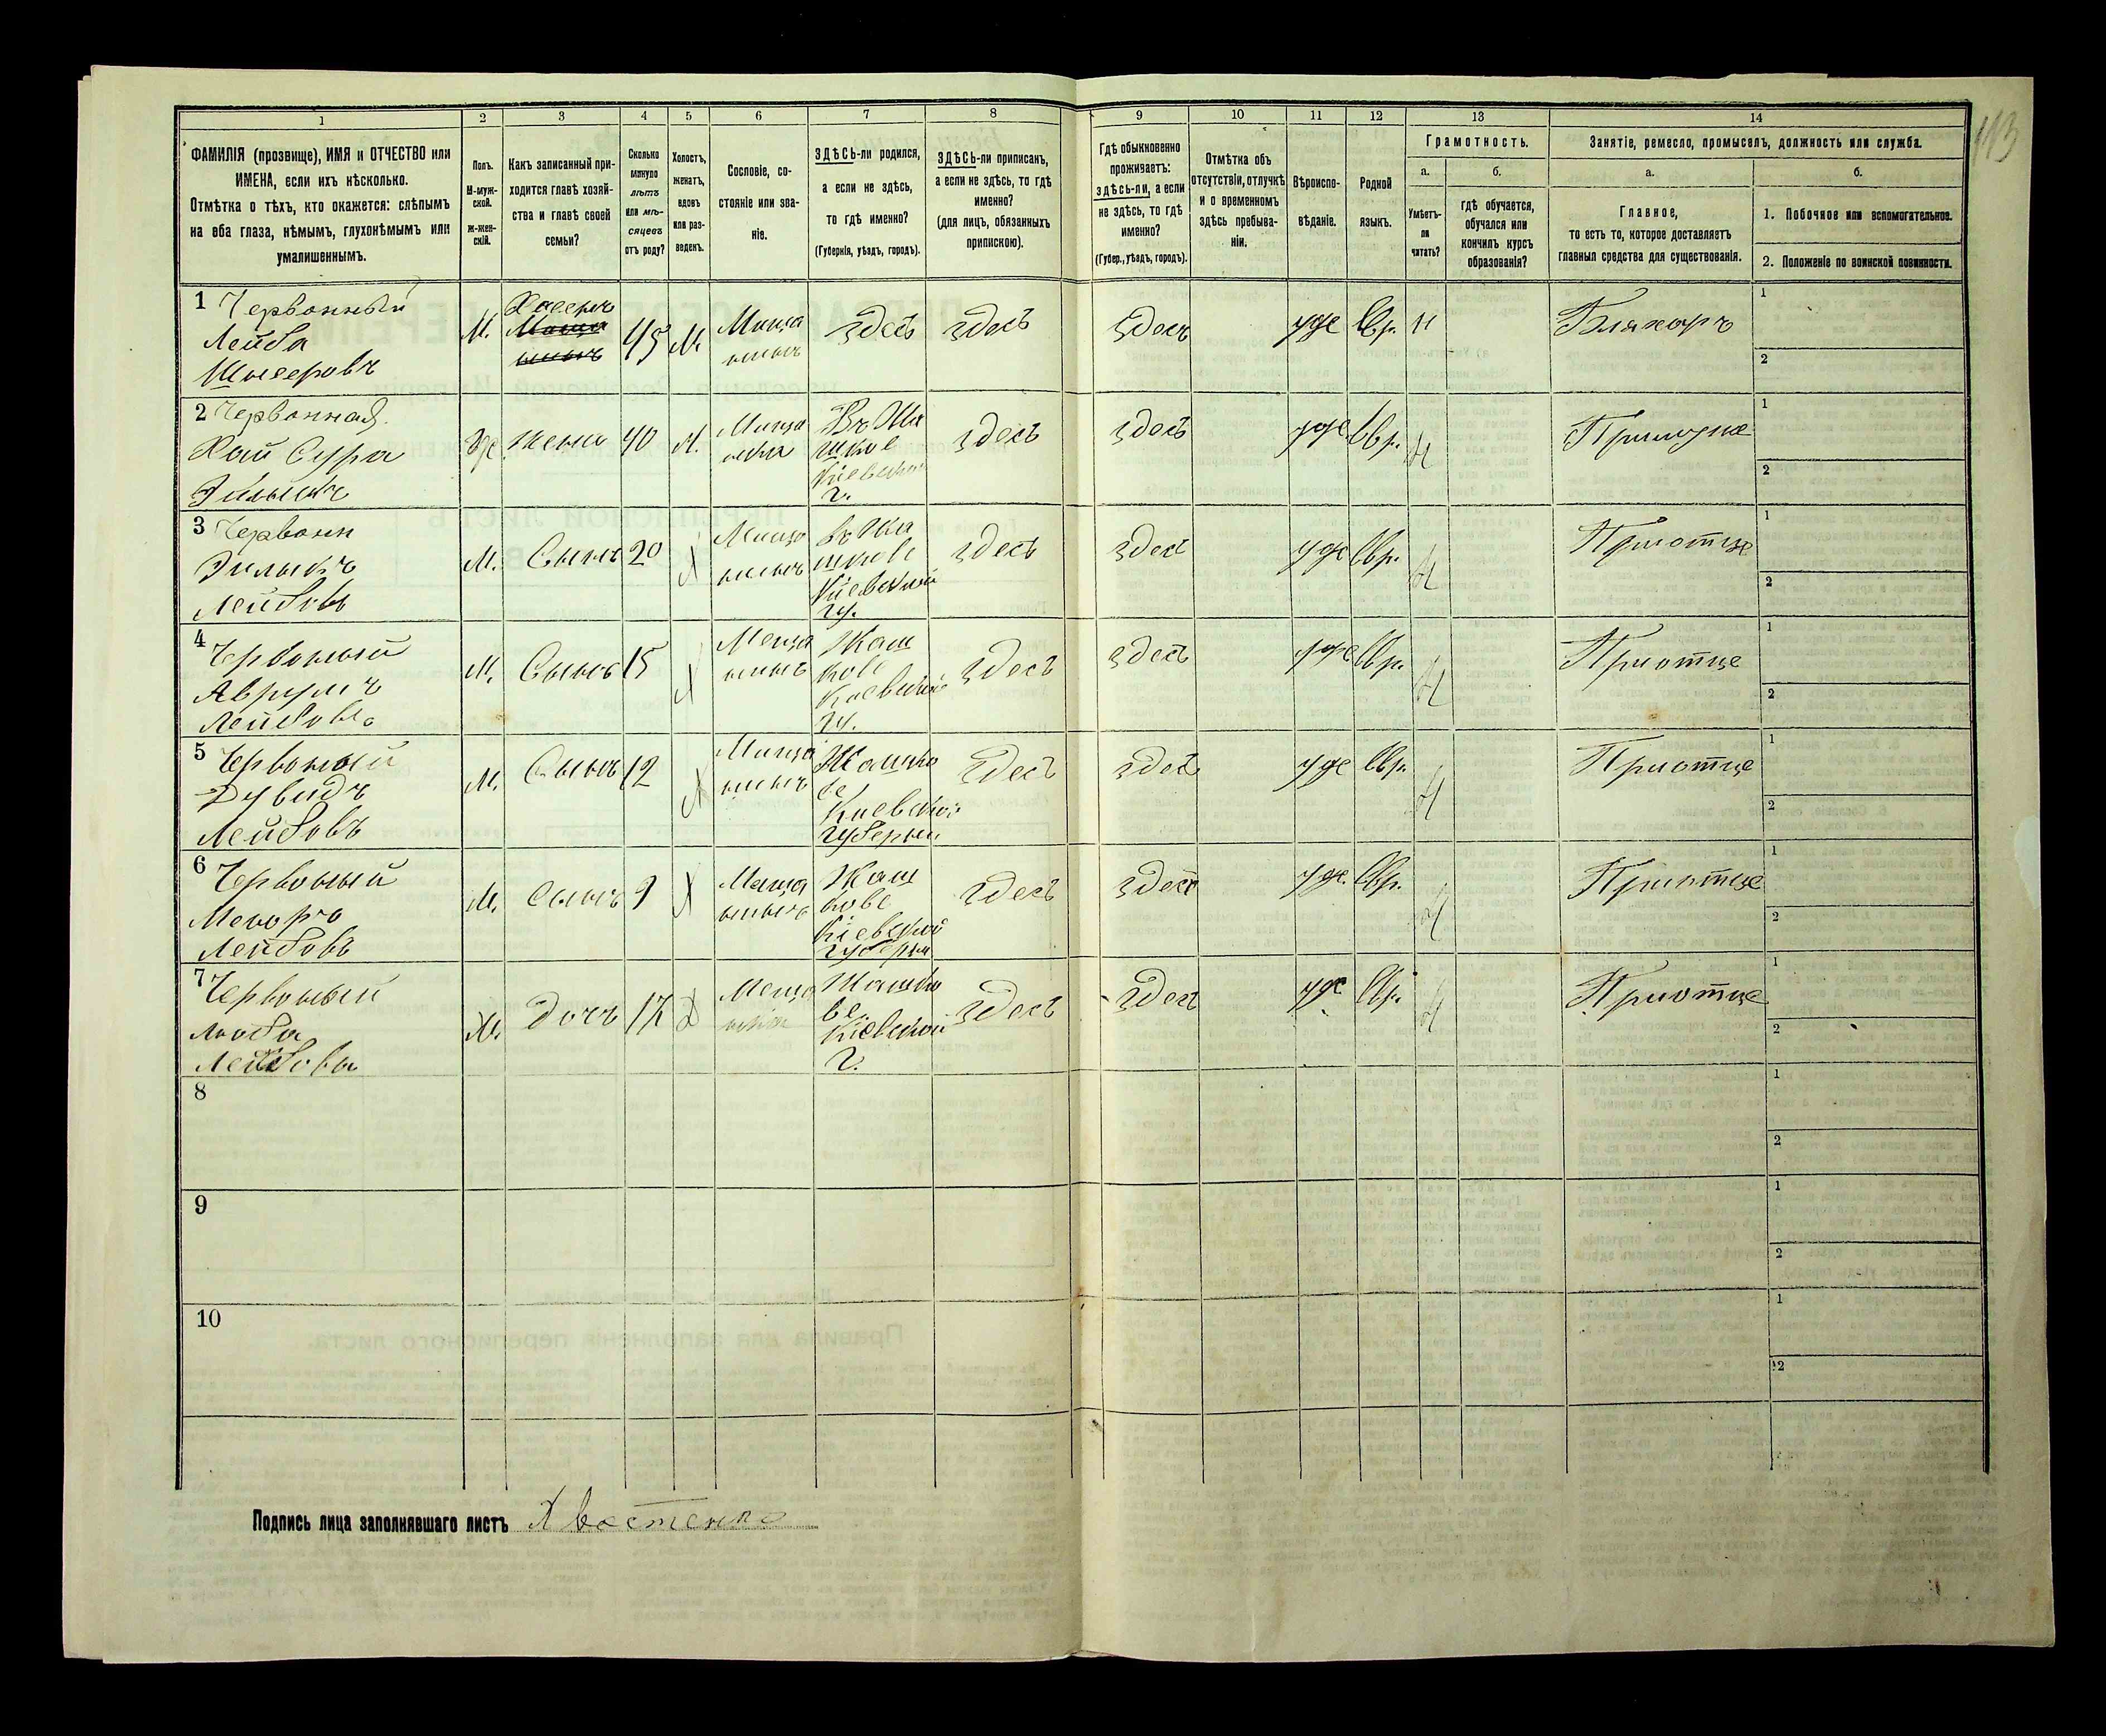 113
1 2 3 4 5 6 7 8 9 10 11 12 13 14
ФАМИЛІЯ (прозвище), ИМЯ и ОТЧЕСТВО или
ИМЕНА, если ихъ нѣсколько.
Отмѣтка о тѣхъ, кто окажется: слѣпымъ
на оба глаза, нѣмымъ, глухонѣмымъ или
умалишеннымъ.
Полъ.
М-муж-
ской.
Ж-жен-
скій.
Какъ записанный при-
ходится главѣ хозяй-
ства и главѣ своей
семьи?
Сколько
минуло
лѣтъ
или мѣ-
сяцевъ
отъ роду?
Холостъ,
женатъ,
вдовъ
или раз-
веденъ.
Сословіе, со-
стояніе или зва-
ніе.
ЗДѢСЬ-ли родился,
а если не здѣсь,
то гдѣ именно?
(Губернія, уѣздъ, городъ).
ЗДѢСЬ-ли приписанъ,
а если не здѣсь, то гдѣ
именно?
(для лицъ, обязанныхъ
припискою).
Гдѣ обыкновенно
проживаетъ:
здѣсь-ли, а если
не здѣсь, то гдѣ
именно?
(Губер., уѣздъ, городъ).
Отмѣтка объ
отсутствіи, отлучкѣ
и о временномъ
здѣсь пребыва-
ніи.
Вѣроиспо-
вѣданіе.
Родной
языкъ.
Грамотность.
а.
Умѣетъ-
ли
читать?
б.
гдѣ обучается,
обучался или
кончилъ курсъ
образованія?
Занятіе, ремесло, промыселъ, должность или служба.
а.
Главное,
то есть то, которое доставляетъ
главныя средства для существованія.
б.
1. Побочное или вспомогательное.
2. Положеніе по воинской повинности.
1 Червонный
Лейба
М. Хасеинъ 45 Мища
нинъ здесъ здесъ здесъ иуде Евр. Н Бляхаръ 1
2
2 Червонная
Хай Сура
жена 40 Мища
нка
Киевской
г. здесъ здесъ иуде Евр. Н 1
2
3 Червонн
Лейбовъ
М. Сынъ 20 Х Мища
нинъ
Киевской
гу. здесъ здесъ иуде Евр. Н Приотце 1
2
4 Червоный
Аврумъ
Лейбовъ
М. Сынъ 15 Х Меща
нинъ Жаш
кове
Киевской
гу. здесъ здесъ иуде Евр. Н Приотце 1
2
5 Червоный
Дувидъ
Лейбовъ
М. Сынъ 12 Х Мища
нинъ Жашко
ве
Киевской
губерни здесъ здесъ иуде Евр. Н Приотце 1
2
6 Червоный
Лейбовъ
М. Сынъ 9 Х Меща
нинъ Жаш
кове
Кіевской
губерни здесъ здесъ иуде. Евр. Н Приотце 1
2
7 Червоный
Люба
Лейбова
Ж. Дочъ 17 Х Меща
нка Жашко
ве.
Кіевской
г. здесъ здесъ иуде Евр. Н Приотце 1
2
8 1
2
9 1
2
10 1
2
Подпись лица заполнявшаго листъ Хвостенко